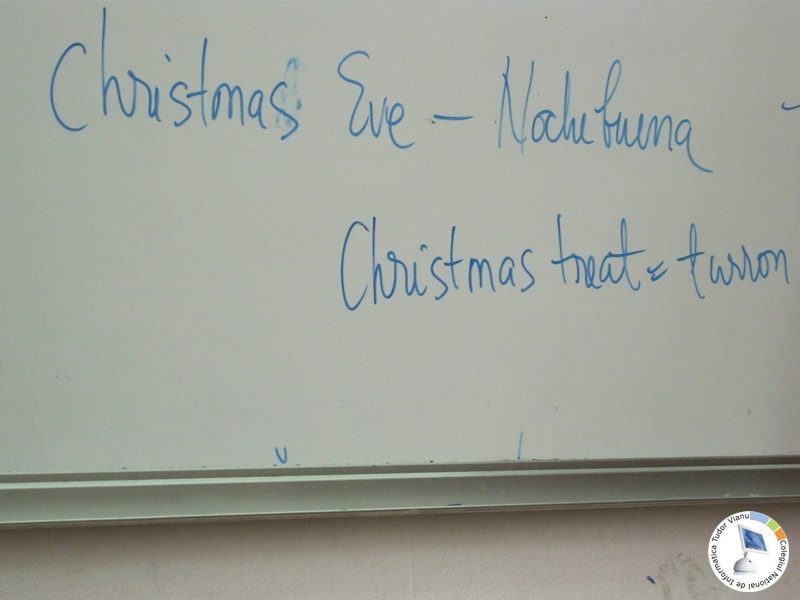 Christmas Eve – Nochebuena -
Christmas treat = turron
Colegiul National de Informatica Tudor Vianu